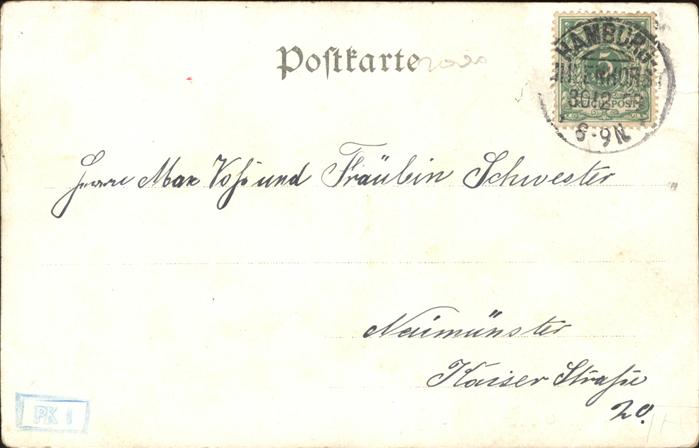 Postkarte
HAMBURG
5
30 12
REICHSPOST
8-9N.
Herrn Max Voß und Fräulein Schwester
Neumünster
Kaiser Straße
20.
PK 1